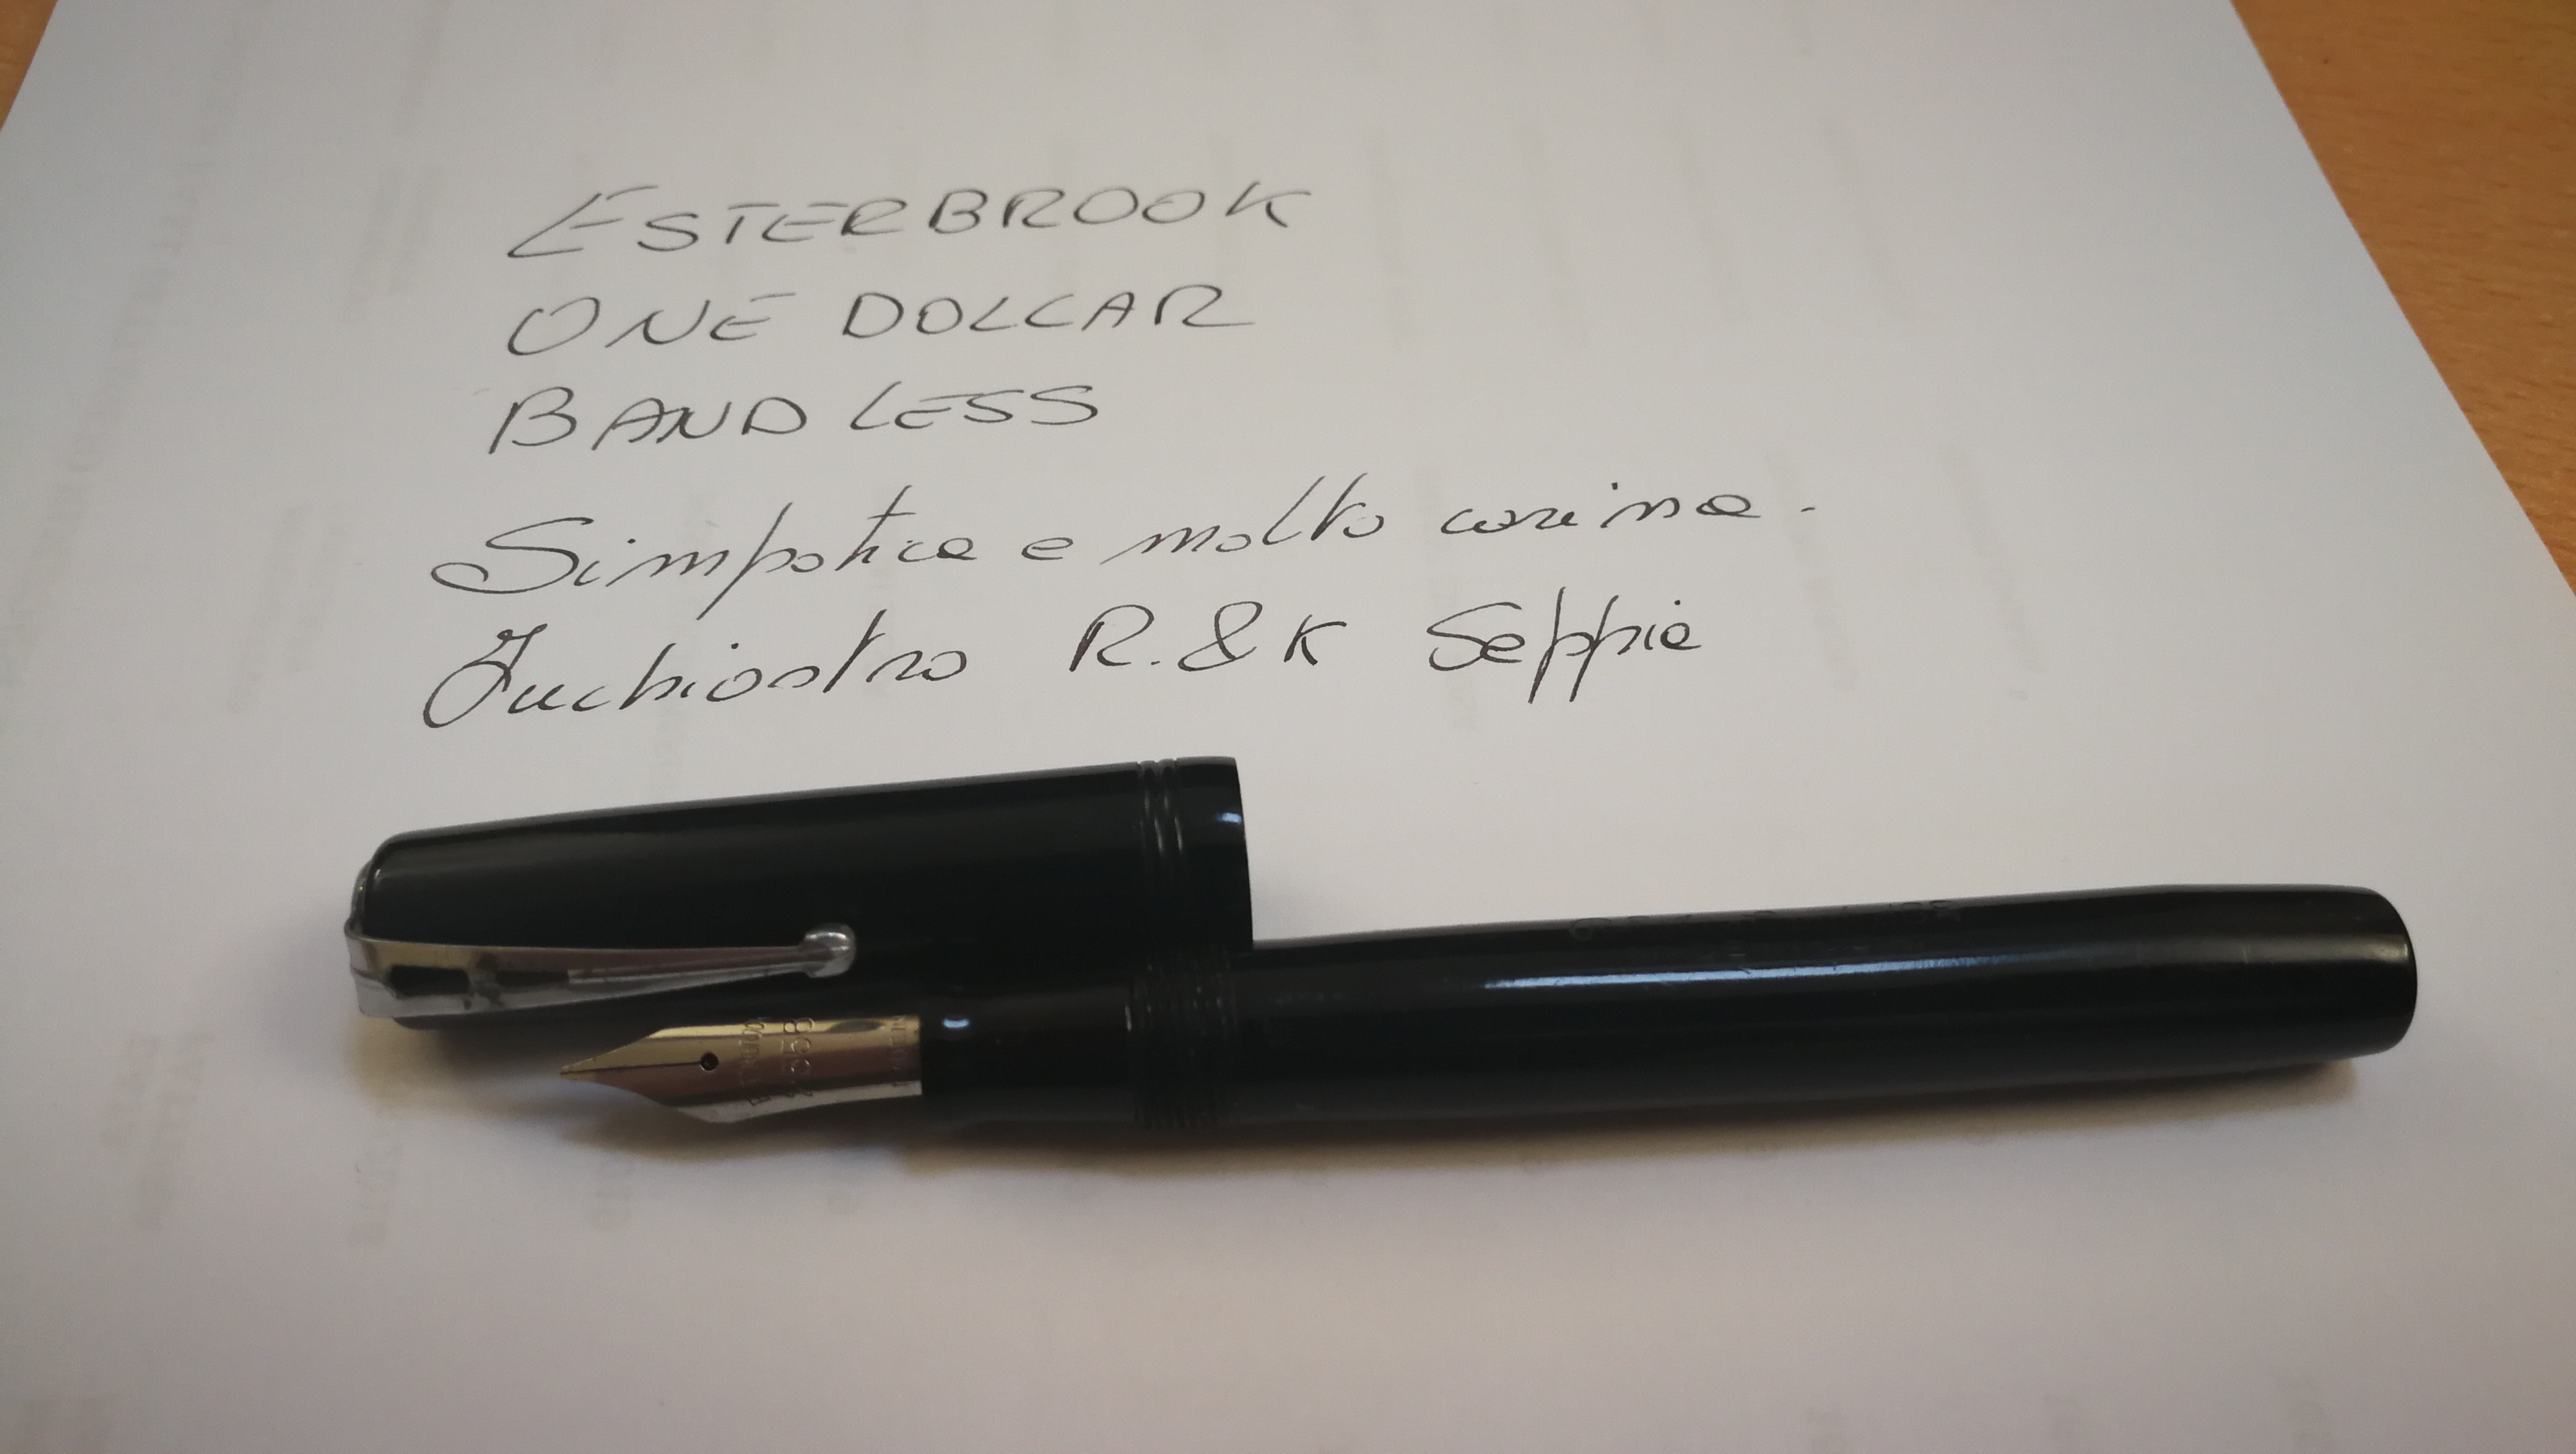 ESTERBROOK
ONE DOLLAR
BAND LESS
Simpatica e molto carina.
Inchiostro R.&K Seppia